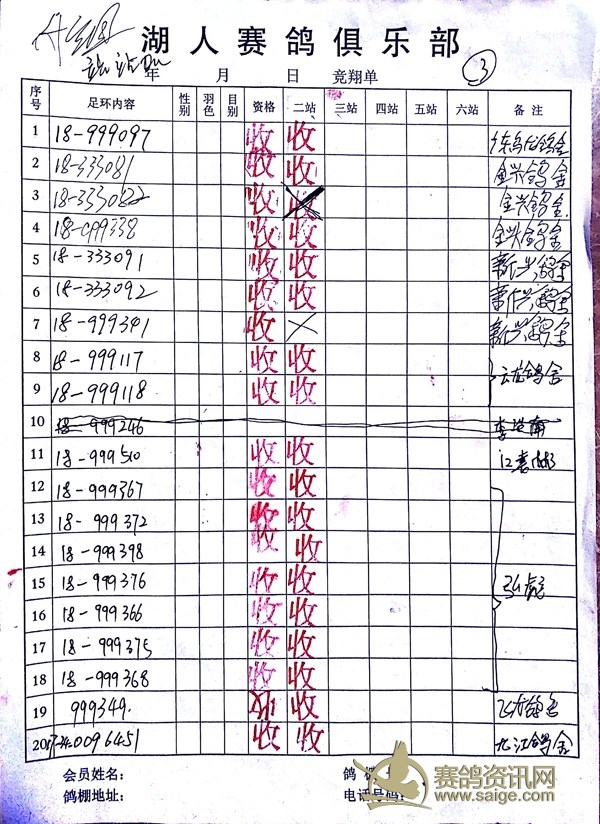 湖人赛鸽俱乐部
年 月 日 竞翔单 3
序号 足环内容 性别 羽色 目别 资格 二站 三站 四站 五站 六站 备注
1 18-999097 收 收
2 18-333081 收 收 金兴鸽舍
3 18-333082 收 金兴鸽舍
4 18-099338 收 收 金兴鸽舍
5 18-333091 收 收 新兴鸽舍
6 18-333092 收 收 新兴鸽舍
7 18-999341 收 新兴鸽舍
8 18-999117 收 收 云龙鸽舍
9 18-999118 收 收
10 18-999246
11 18-999510 收 收
12 18-999367 收 收
13 18-999372 收 收
14 18-999398 收 收
15 18-999376 收 收 张彪
16 18-999366 收 收
17 18-999375 收 收
18 18-999368 收 收
19 999349. 收 飞龙鸽舍
20 0096451 收 收 九江鸽舍
会员姓名: 鸽棚
鸽棚地址: 电话号码:
赛鸽资讯网
www.saige.com